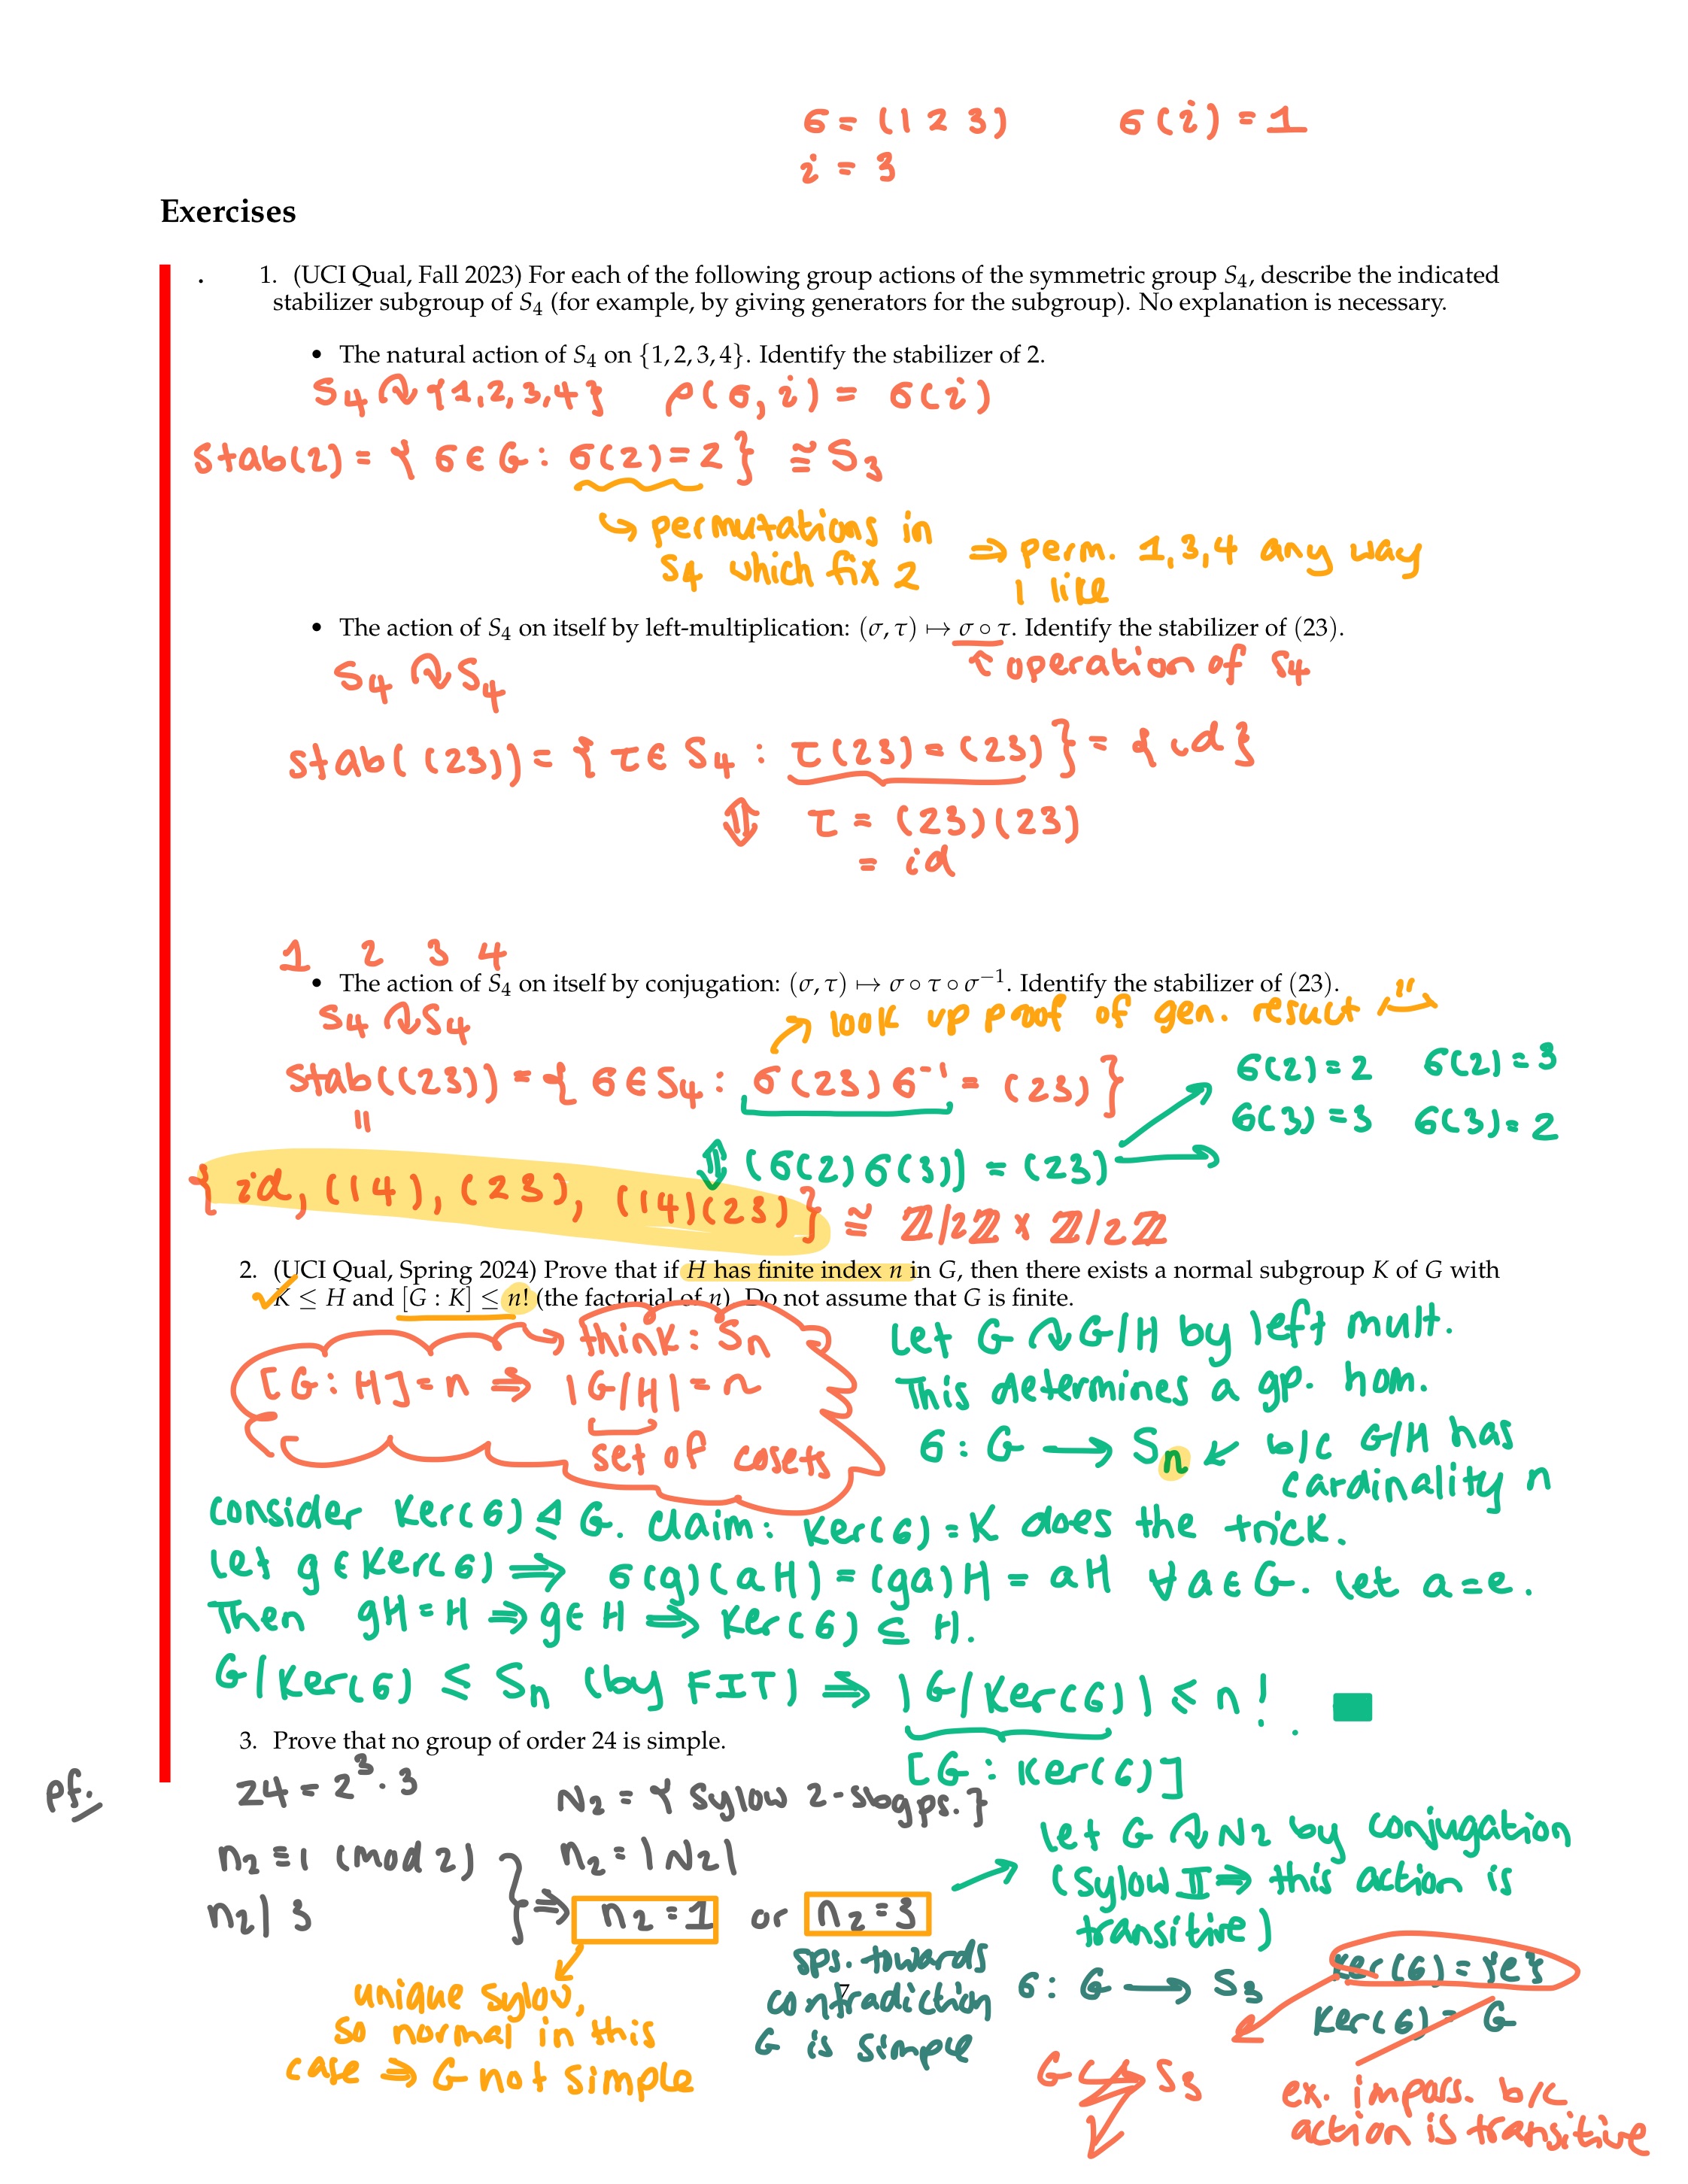 σ = (1 2 3)   σ(i) = 1
i = 3
Exercises
1. (UCI Qual, Fall 2023) For each of the following group actions of the symmetric group S₄, describe the indicated
stabilizer subgroup of S₄ (for example, by giving generators for the subgroup). No explanation is necessary.
• The natural action of S₄ on {1, 2, 3, 4}. Identify the stabilizer of 2.
S₄ ↷ {1,2,3,4}   ρ(σ, i) = σ(i)
Stab(2) = { σ ∈ G : σ(2) = 2 } ≅ S₃
↪ permutations in
S₄ which fix 2
⇒ perm. 1,3,4 any way
I like
• The action of S₄ on itself by left-multiplication: (σ, τ) ↦ σ ∘ τ. Identify the stabilizer of (23).
S₄ ↷ S₄
↑ operation of S₄
Stab((23)) = { τ ∈ S₄ : τ(23) = (23) } = { id }
⇕ τ = (23)(23)
= id
1 2 3 4
• The action of S₄ on itself by conjugation: (σ, τ) ↦ σ ∘ τ ∘ σ⁻¹. Identify the stabilizer of (23).
S₄ ↷ S₄
↗ look up proof of gen. result
Stab((23)) = { σ ∈ S₄ : σ(23)σ⁻¹ = (23) }
σ(2) = 2   σ(2) = 3
σ(3) = 3   σ(3) = 2
=
⇕ (σ(2) σ(3)) = (23)
{ id, (14), (23), (14)(23) } ≅ ℤ/2ℤ × ℤ/2ℤ
2. (UCI Qual, Spring 2024) Prove that if H has finite index n in G, then there exists a normal subgroup K of G with
K ≤ H and [G : K] ≤ n! (the factorial of n). Do not assume that G is finite.
→ think: Sₙ
[G : H] = n ⇒ |G/H| = n
set of cosets
Let G ↷ G/H by left mult.
This determines a gp. hom.
σ : G → Sₙ ↙ b/c G/H has
cardinality n
Consider Ker(σ) ⊴ G. Claim: Ker(σ) = K does the trick.
Let g ∈ Ker(σ) ⇒ σ(g)(aH) = (ga)H = aH ∀a ∈ G. Let a = e.
Then gH = H ⇒ g ∈ H ⇒ Ker(σ) ⊆ H.
G/Ker(σ) ≤ Sₙ (by FIT) ⇒ |G/Ker(σ)| ≤ n!. ■
[G : Ker(σ)]
3. Prove that no group of order 24 is simple.
pf.
24 = 2³ · 3
N₂ = { Sylow 2-sbgps. }
n₂ ≡ 1 (mod 2)
n₂ = |N₂|
n₂ | 3
⇒ n₂ = 1 or n₂ = 3
unique sylow,
so normal in this
case ⇒ G not simple
sps. towards
contradiction
G is simple
Let G ↷ N₂ by conjugation
(Sylow II ⇒ this action is
transitive)
σ : G → S₃
Ker(σ) = {e}
Ker(σ) = G
G ↪ S₃
ex. imposs. b/c
action is transitive
7